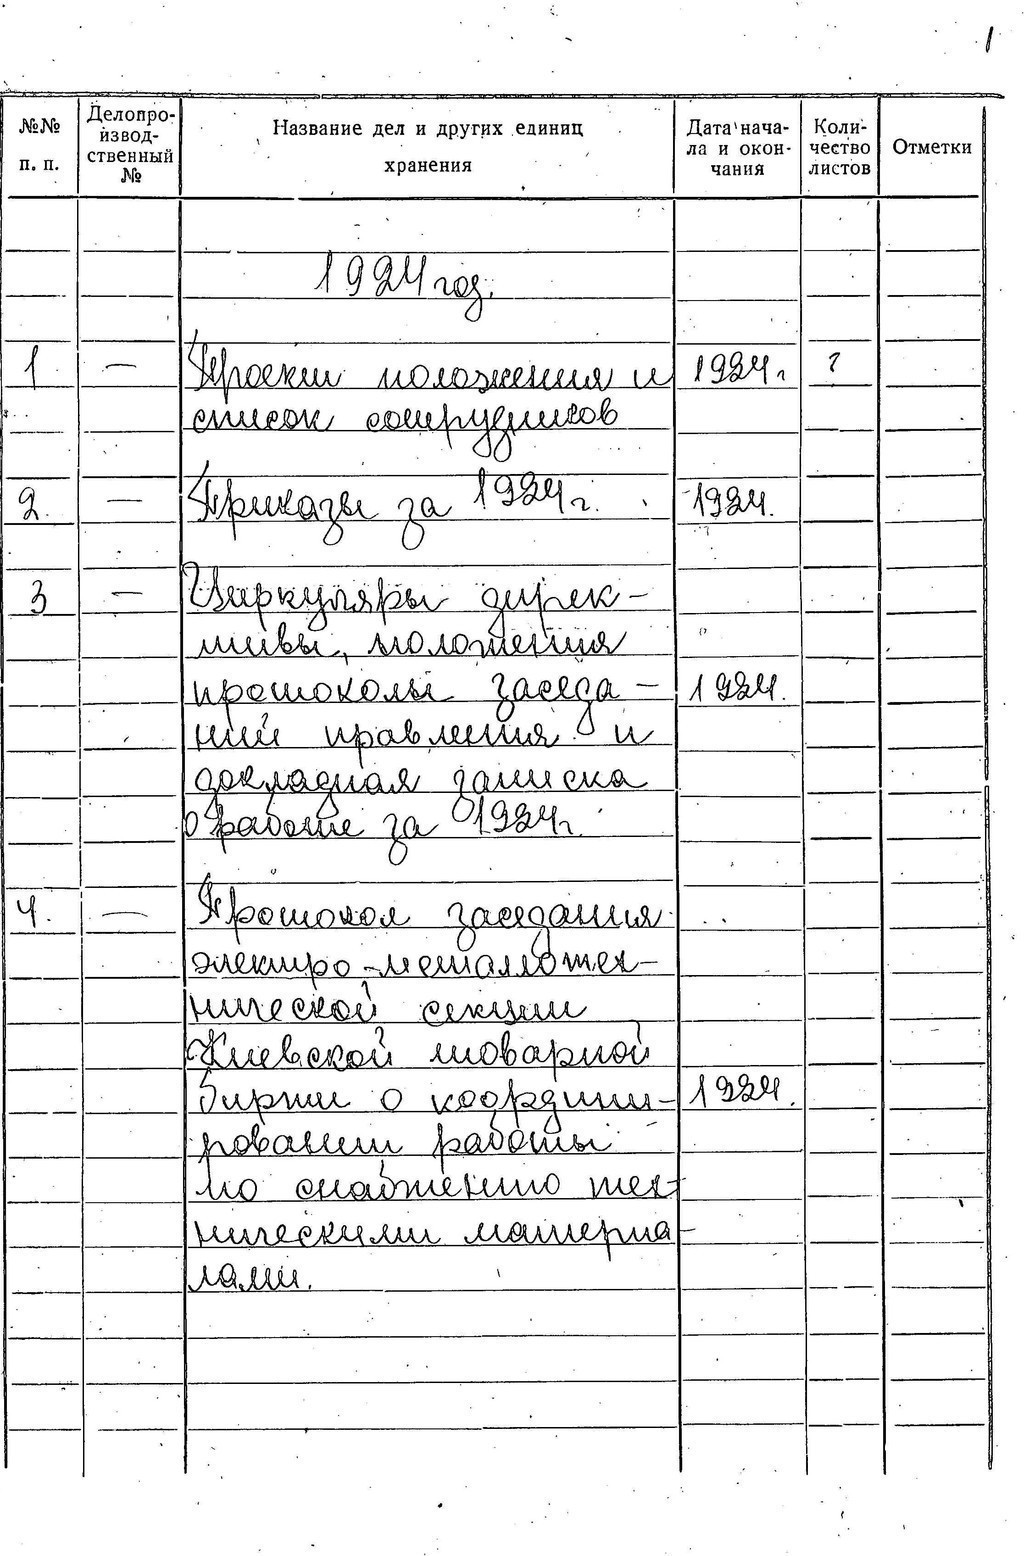 1
№№ п. п. Делопро-изводственный № Название дел и других единиц хранения Дата начала и окончания Количество листов Отметки
1924 год.
1 — Проект положения и 1924 г ?
список сотрудников
2. — Приказы за 1924 г. 1924.
3 — Циркуляры дирек-
тивы, положения
протоколы заседа- 1924.
ний правления и
докладная записка
о работе за 1924 г.
4. — Протокол заседания
электро-металлотех-
нической секции
Киевской товарной
биржи о координи- 1924.
ровании работы
по снабжению тех-
ническими материа-
лами.